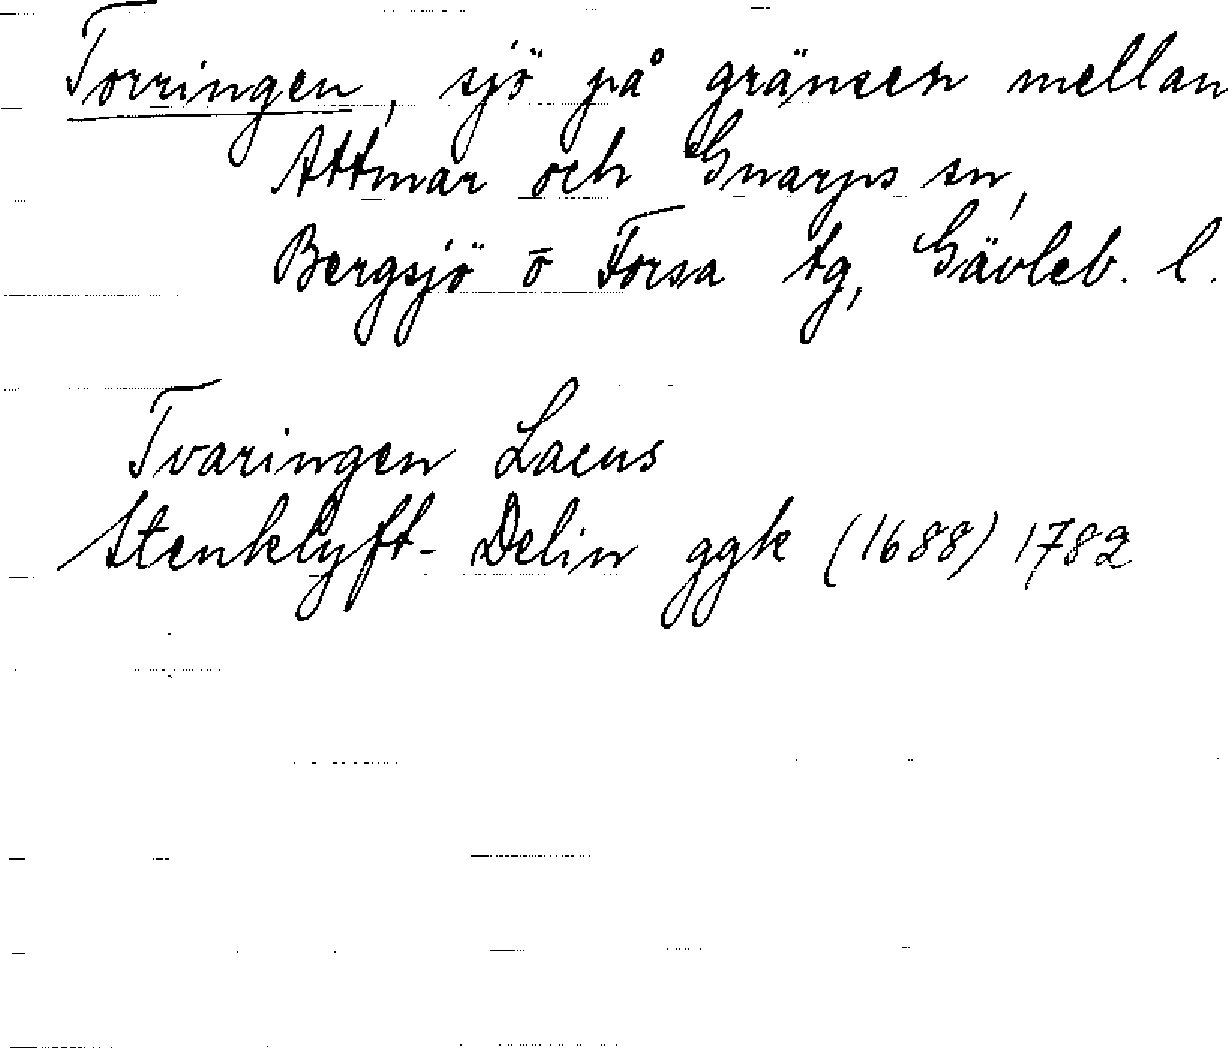 Torringen, sjö på gränsen mellan
Attmar och Gnarps sn,
Bergsjö o Forsa tg, Gävleb. l.
Tvaringen Lacus
Stenklyft- Delin ggk (1688) 1782